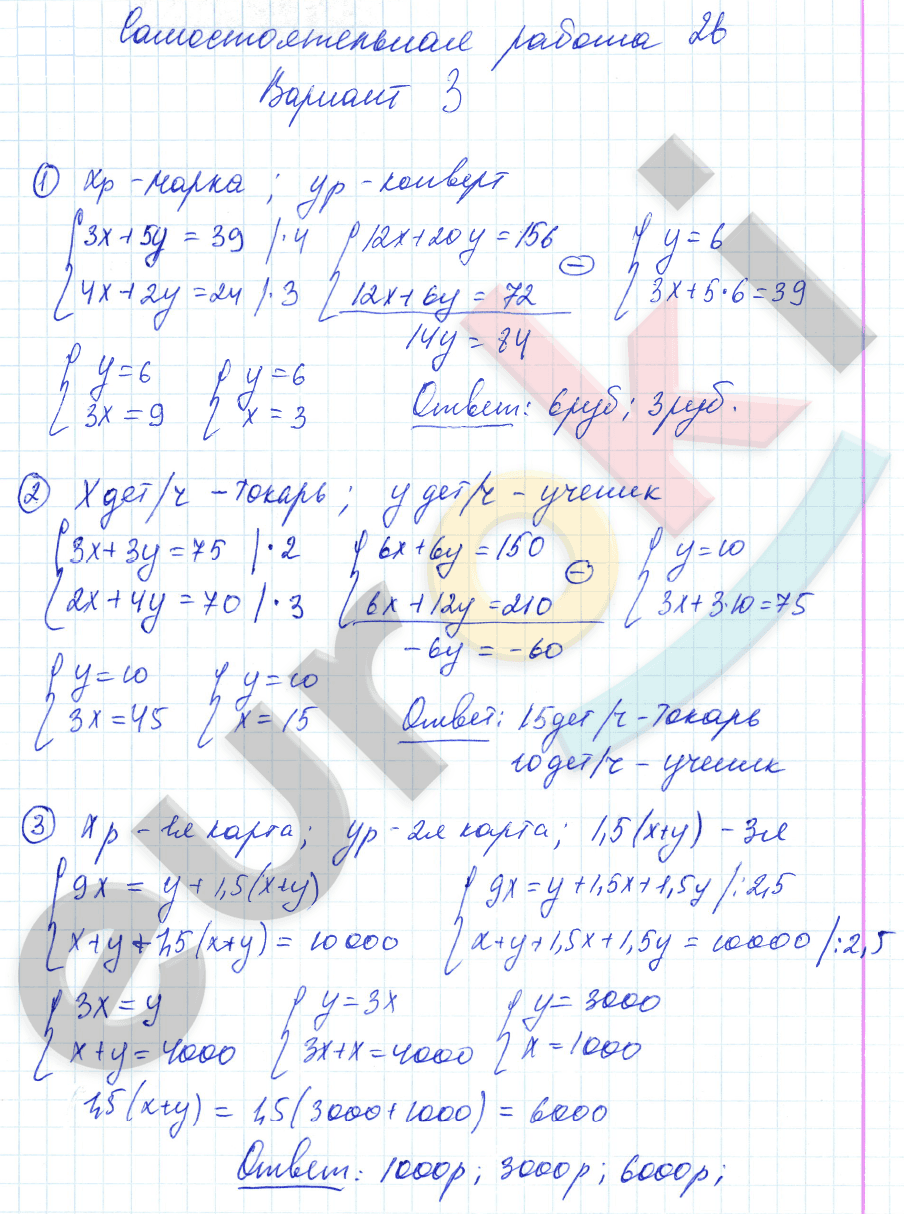 Самостоятельная работа 2в
Вариант 3
① xр - марка ; yр - конверт
{3x + 5y = 39 |·4 {12x + 20y = 156 ⊖ {y = 6
{4x + 2y = 24 |·3 {12x + 6y = 72 {3x + 5·6 = 39
14y = 84
{y = 6 {y = 6
{3x = 9 {x = 3
Ответ: 6руб; 3руб.
② x дет/ч - токарь ; y дет/ч - ученик
{3x + 3y = 75 |·2 {6x + 6y = 150 ⊖ {y = 10
{2x + 4y = 70 |·3 {6x + 12y = 210 {3x + 3·10 = 75
-6y = -60
{y = 10 {y = 10
{3x = 45 {x = 15
Ответ: 15дет/ч - токарь
10дет/ч - ученик
③ xр - 1я карта; yр - 2я карта; 1,5(x+y) - 3я
{9x = y + 1,5(x+y) {9x = y + 1,5x + 1,5y |:2,5
{x + y + 1,5(x+y) = 10000 {x + y + 1,5x + 1,5y = 10000 |:2,5
{3x = y {y = 3x {y = 3000
{x + y = 4000 {3x + x = 4000 {x = 1000
1,5(x+y) = 1,5(3000 + 1000) = 6000
Ответ: 1000р; 3000р; 6000р;
euroki